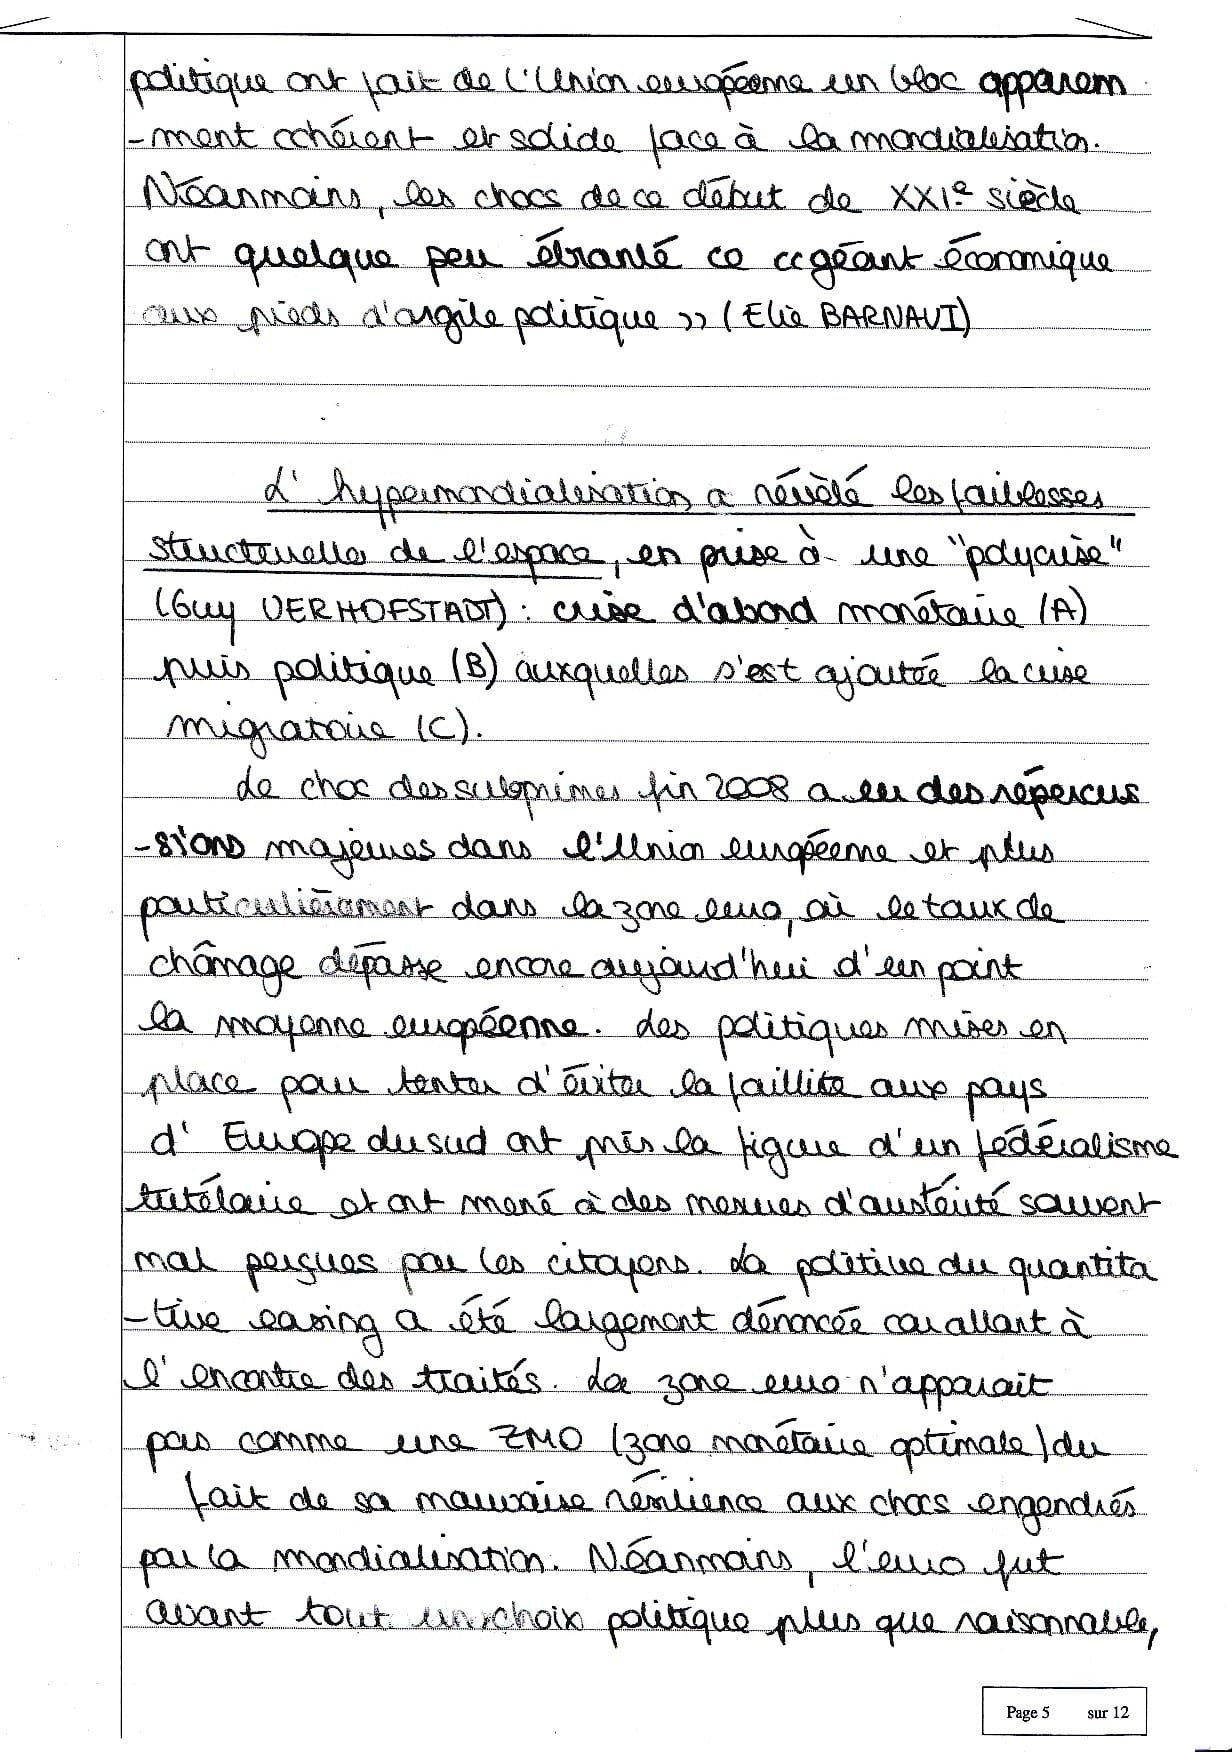 politique ont fait de l'Union européenne un bloc apparem
-ment cohérent et solide face à la mondialisation.
Néanmoins, les chocs de ce début de XXIe siècle
ont quelque peu ébranlé ce « géant économique
aux pieds d'argile politique » (Elie BARNAVI)
L'hypermondialisation a révélé les faiblesses
structurelles de l'espace, en prise à une "polycrise"
(Guy VERHOFSTADT) : crise d'abord monétaire (A)
puis politique (B) auxquelles s'est ajoutée la crise
migratoire (C).
Le choc des subprimes fin 2008 a eu des répercus
-sions majeures dans l'Union européenne et plus
particulièrement dans la zone euro, où le taux de
chômage dépasse encore aujourd'hui d'un point
la moyenne européenne. Les politiques mises en
place pour tenter d'éviter la faillite aux pays
d'Europe du sud ont pris la figure d'un fédéralisme
tutélaire et ont mené à des mesures d'austérité souvent
mal perçues par les citoyens. La politive du quantita
-tive easing a été largement dénoncée car allant à
l'encontre des traités. La zone euro n'apparait
pas comme une ZMO (zone monétaire optimale) du
fait de sa mauvaise résilience aux chocs engendrés
par la mondialisation. Néanmoins, l'euro fut
avant tout un choix politique plus que raisonnable,
Page 5 sur 12